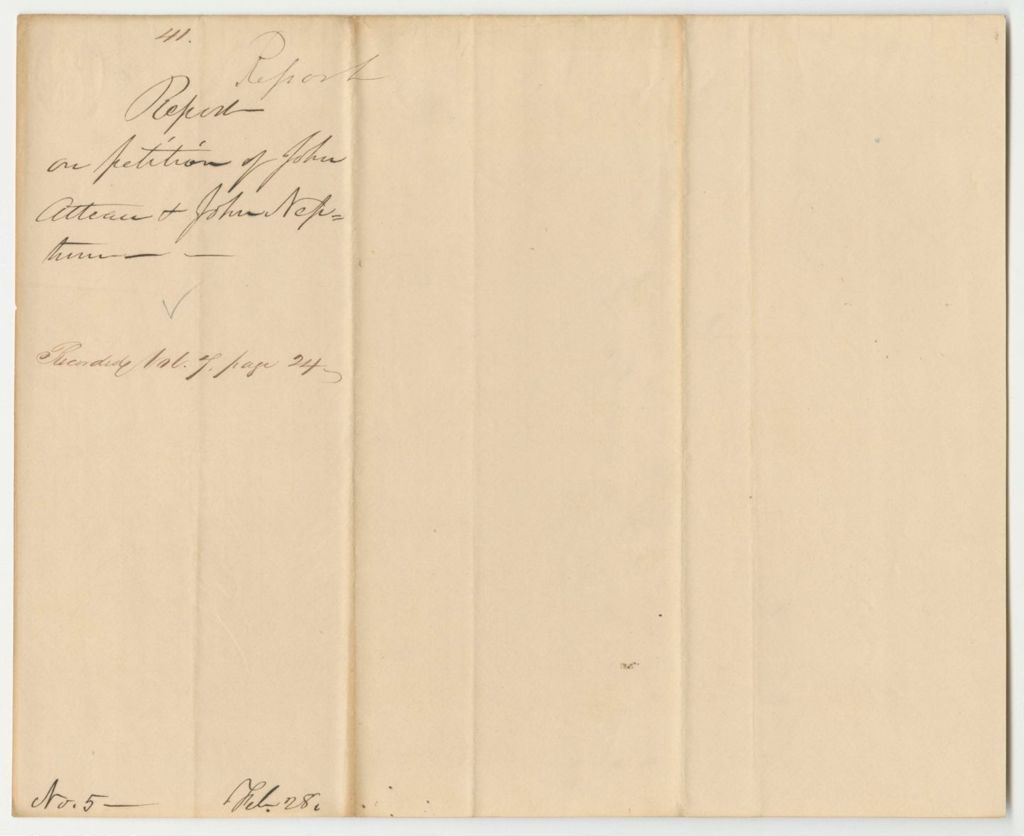 41.
Report
Report
on petition of John
Atteau & John Nep=
tune
Recorded, Vol. 7, page 24
No. 5
Feb. 28.